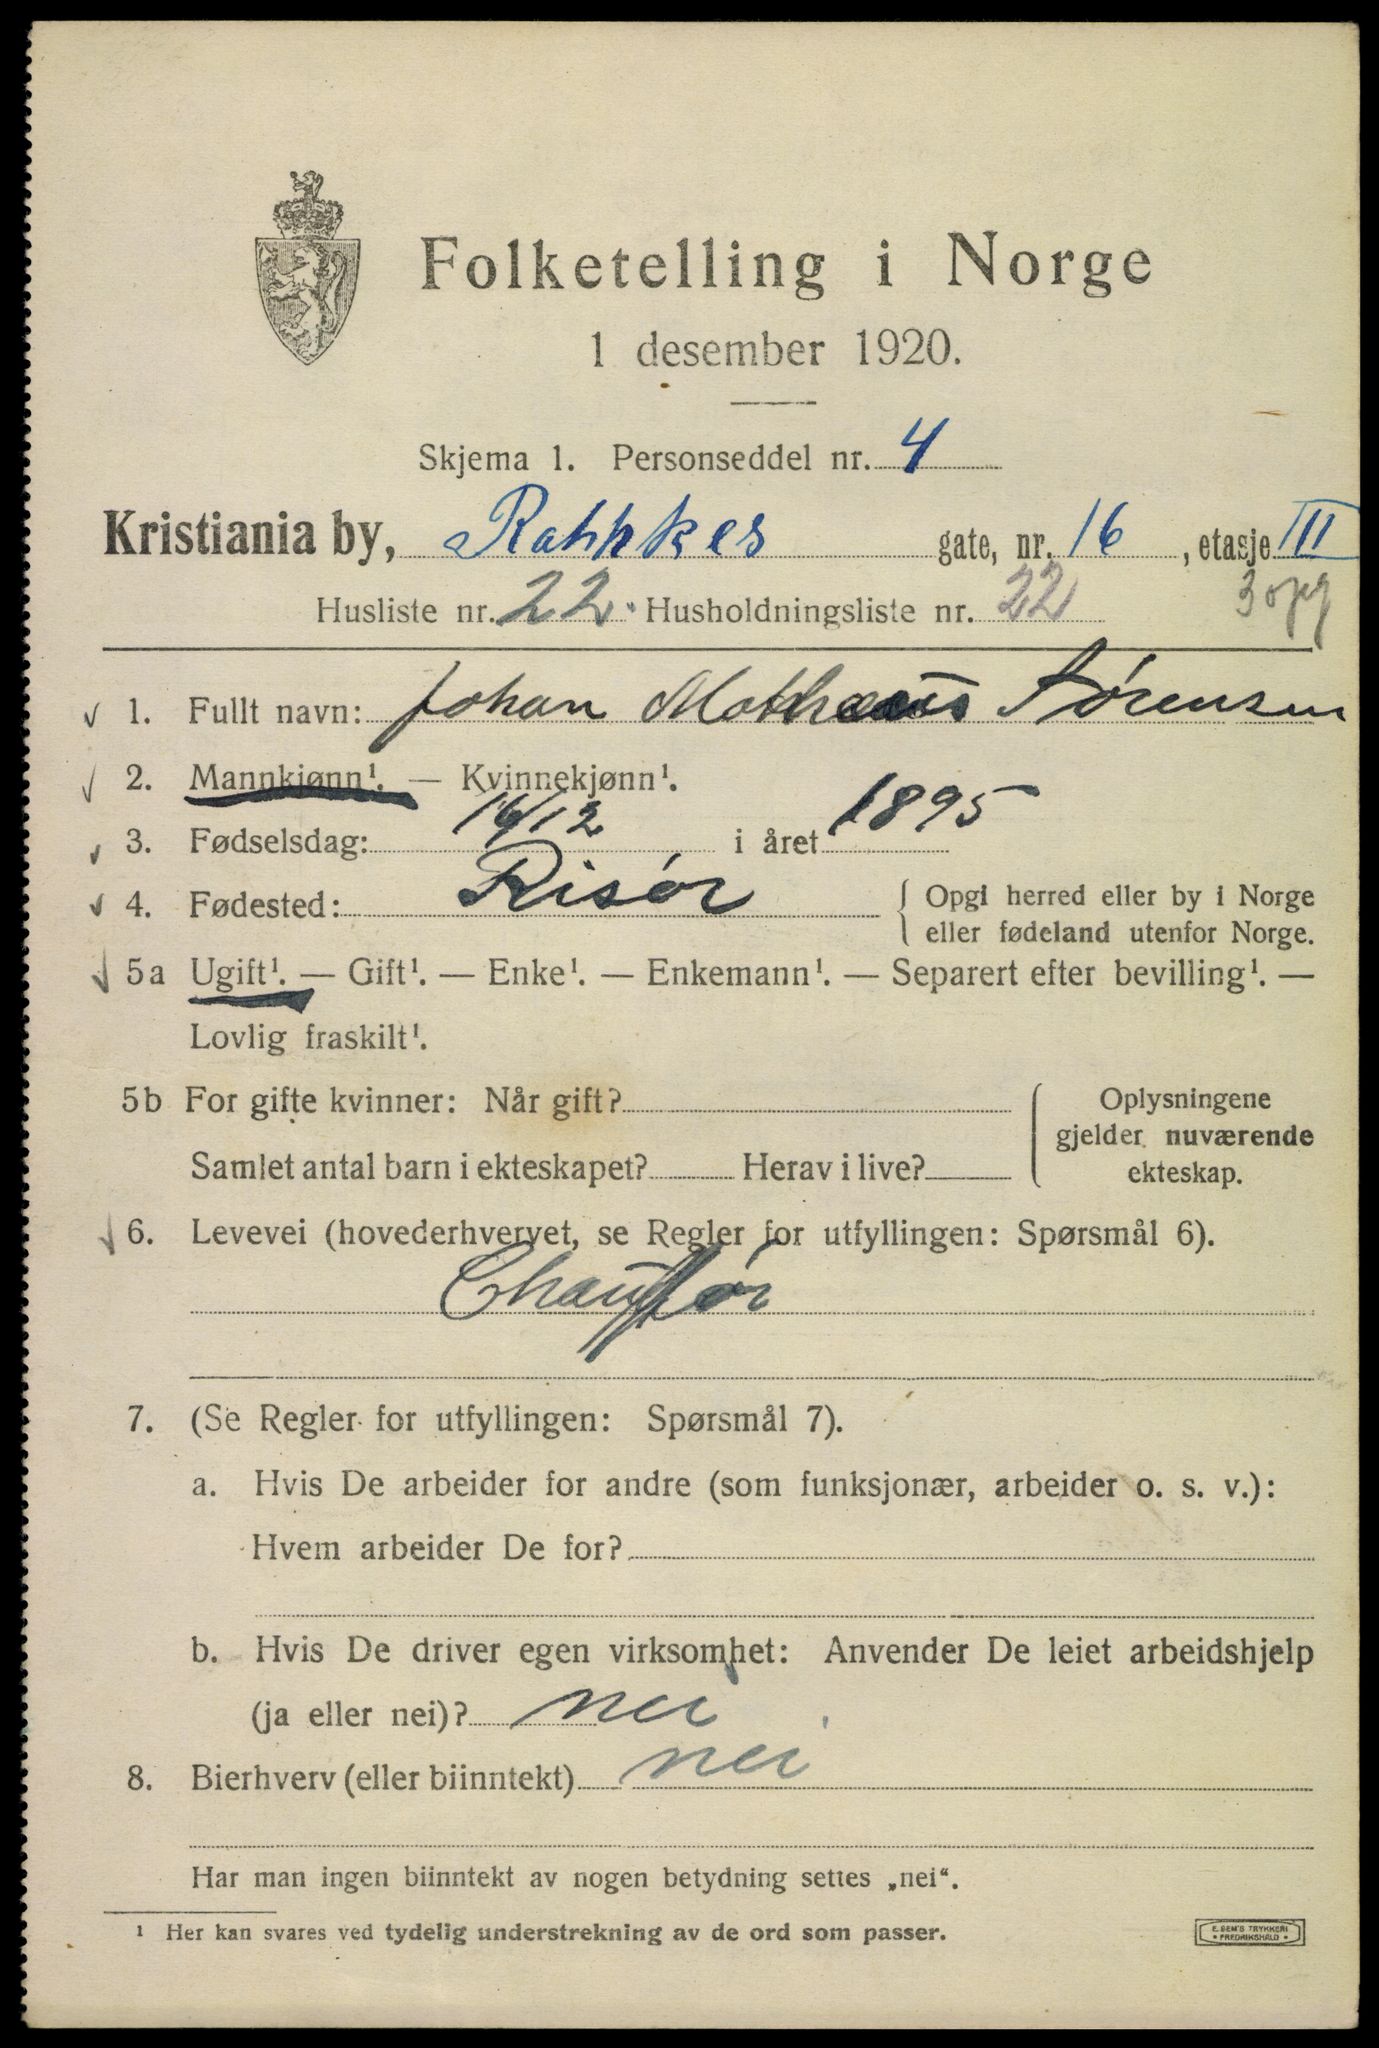 Folketelling i Norge
1 desember 1920.
Skjema 1. Personseddel nr. 4
Kristiania by, Rathkes gate, nr. 16, etasje III
Husliste nr. 22. Husholdningsliste nr. 22 3 opg
1. Fullt navn: Johan Mathæus Sørensen
2. Mannkjønn¹. — Kvinnekjønn¹.
3. Fødselsdag: 16/12 i året 1895
4. Fødested: Risør { Opgi herred eller by i Norge
eller fødeland utenfor Norge.
5a Ugift¹. — Gift¹. — Enke¹. — Enkemann¹. — Separert efter bevilling¹. —
Lovlig fraskilt¹.
5b For gifte kvinner: Når gift? { Oplysningene
gjelder nuværende
Samlet antal barn i ekteskapet? Herav i live? ekteskap.
6. Levevei (hovederhvervet, se Regler for utfyllingen: Spørsmål 6).
Chauffør
7. (Se Regler for utfyllingen: Spørsmål 7).
a. Hvis De arbeider for andre (som funksjonær, arbeider o. s. v.):
Hvem arbeider De for?
b. Hvis De driver egen virksomhet: Anvender De leiet arbeidshjelp
(ja eller nei)? nei
8. Bierhverv (eller biinntekt) nei
Har man ingen biinntekt av nogen betydning settes „nei“.
¹ Her kan svares ved tydelig understrekning av de ord som passer.
E. SEM'S TRYKKERI
• FREDRIKSHALD •